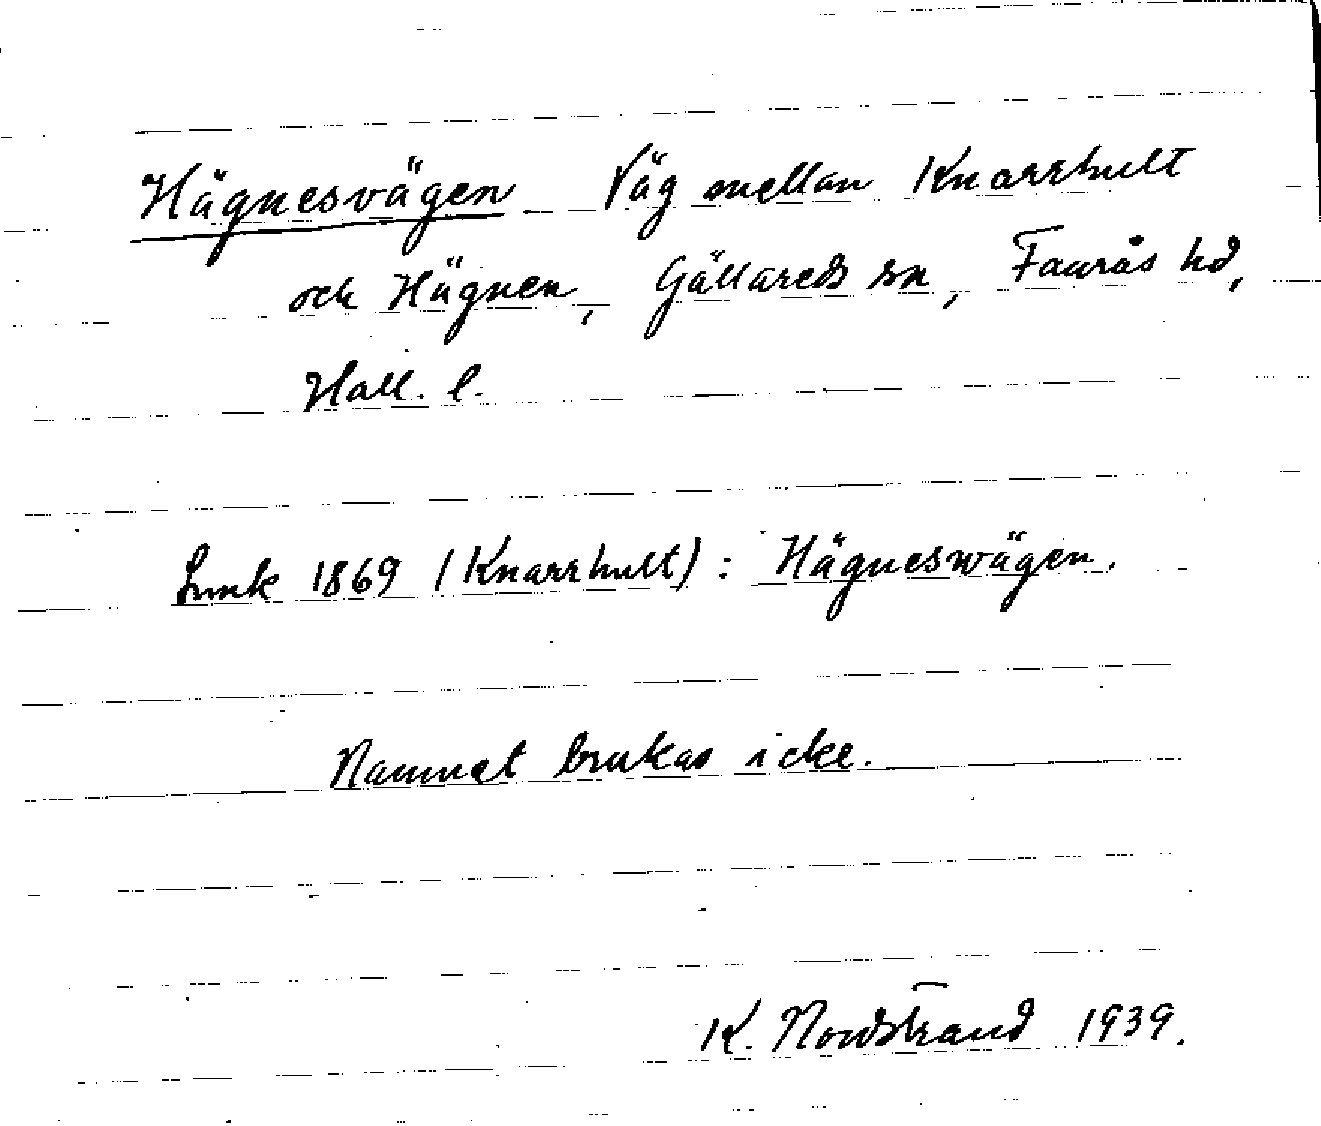 Hägnesvägen Väg mellan Knarrhult
och Hägnen, Gällareds sn, Faurås hd,
Hall. l.
1869 (Knarrhult): Hägneswägen.
Namnet brukas icke.
K. Nordstrand 1939.